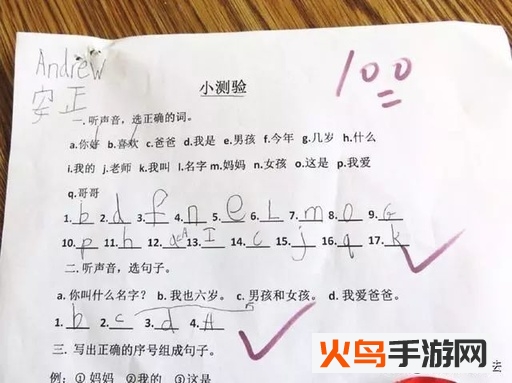 Andrew
安正
100
小测验
一.听声音，选正确的词。
a.你好 b.喜欢 c.爸爸 d.我是 e.男孩 f.今年 g.几岁 h.什么
i.我的 j.老师 k.我叫 l.名字 m.妈妈 n.女孩 o.这是 p.我爱
q.哥哥
1. b 2. d 3. f 4. n 5. e 6. L 7. m 8. o 9. G
10. p 11. h 12. a 13. I 14. c 15. j 16. q 17. k
二. 听声音，选句子。
a. 你叫什么名字？ b. 我也六岁。 c. 男孩和女孩。 d. 我爱爸爸。
1. b 2. c 3. d 4. A
三. 写出正确的序号组成句子。
例：① 妈妈 ②我的 ③这是
去
火鸟手游网